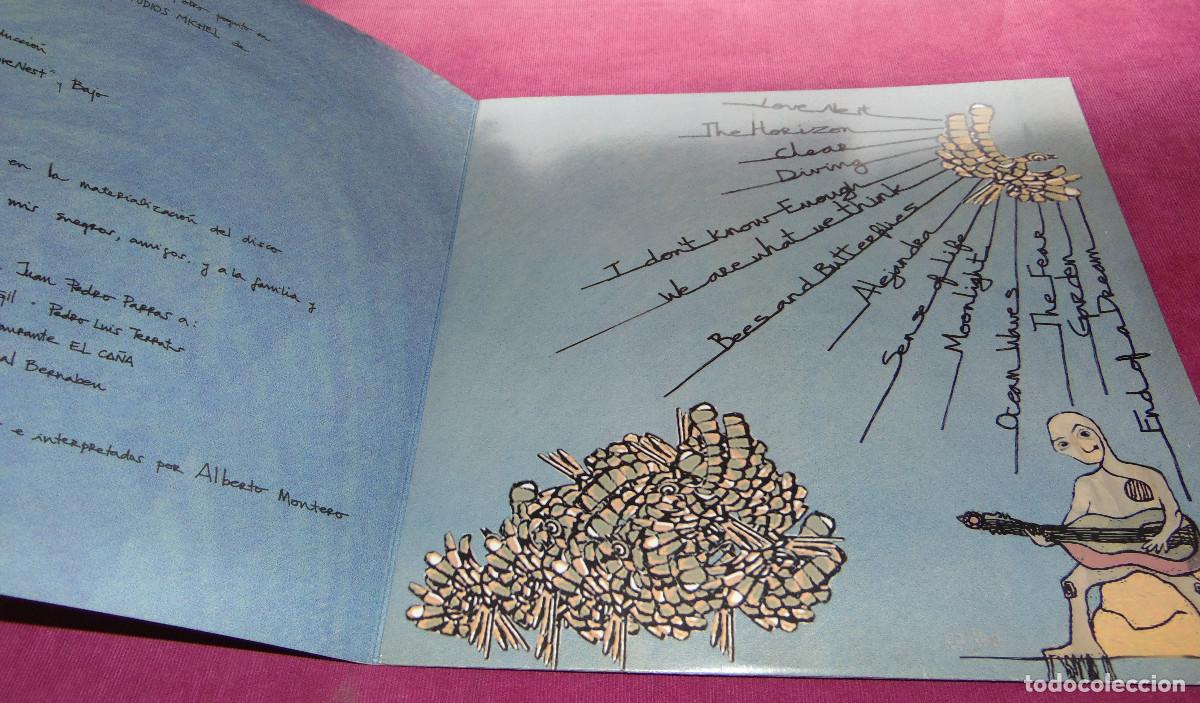 TUDIOS MICHEL de
y Bajo
en la materialización del disco
mis suegros, amigos, y a la familia y
Juan Pedro Parras a:
gil · Pedro Luis Terrats
aurante EL CAÑA
al Bernabeu
e interpretadas por Alberto Montero
Love Nest
The Horizon
Clear
Diving
I don't know Enough
We are what we think
Bees and Butterflies
Alejandra
Sense of Life
Moonlight
Ocean Waves
The Fear
Garden
End of a Dream
todocoleccion